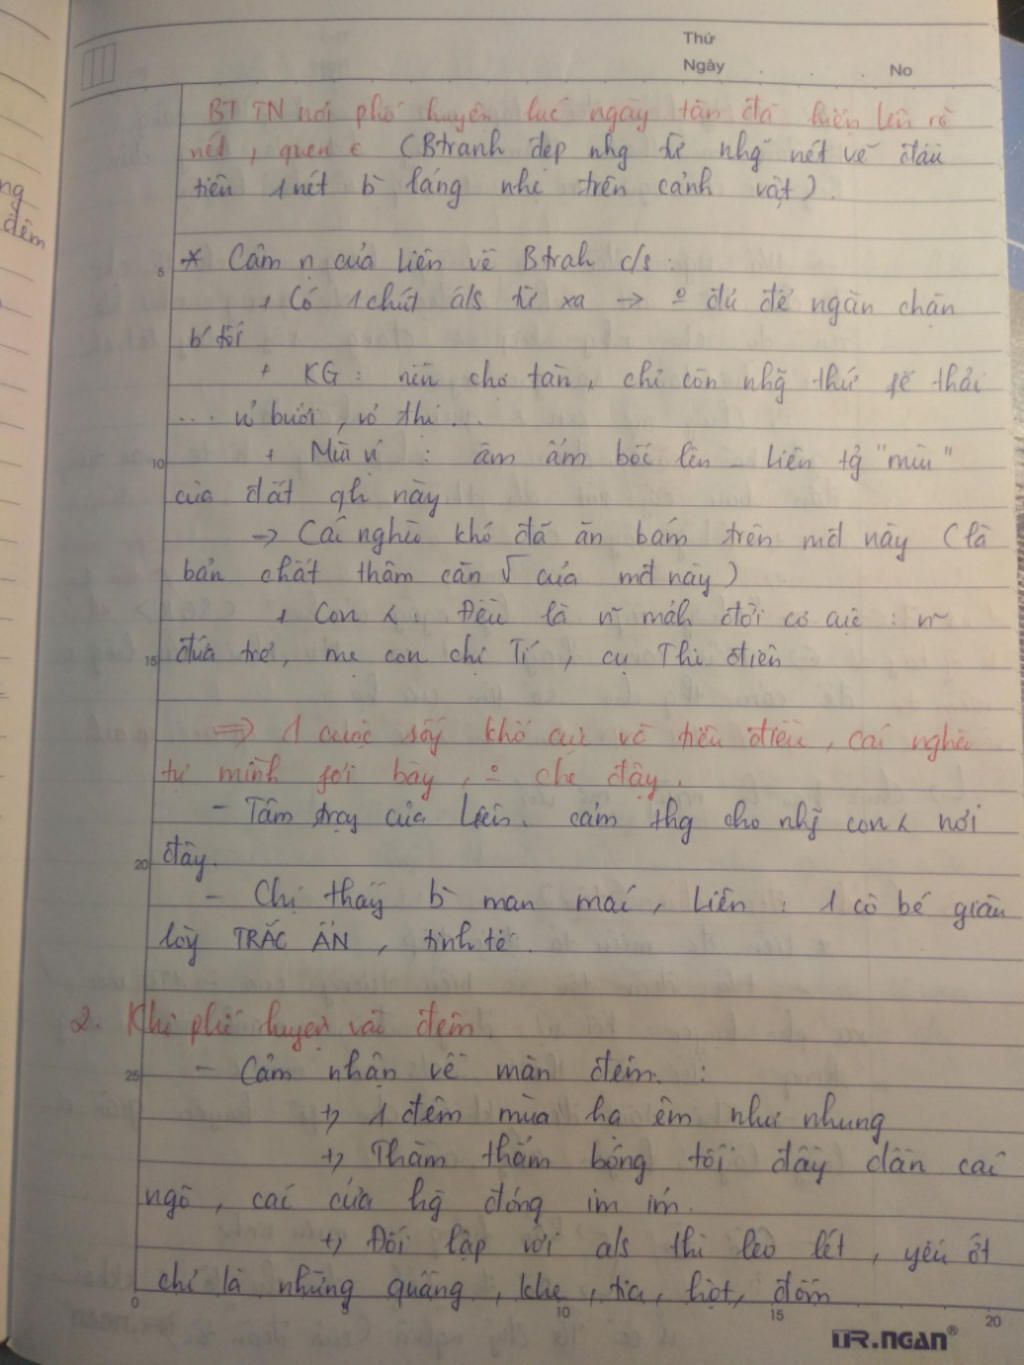 Thứ
Ngày . . . No
BT TN nơi phố huyện lúc ngày tàn đã hiện lên rõ
nét, quen (Btranh đẹp nhg từ nhg nét vẽ đầu
tiên 1 nét b láng nhẹ trên cảnh vật).
5
* Cảm n của Liên về Btrah c/s :
+ Có 1 chút áls từ xa → º đủ để ngăn chặn
b tối
+ KG : nền chợ tàn, chỉ còn nhg thứ rế thải
... vỏ bưởi, vỏ thị...
10
+ Mùi vị : âm ẩm bốc lên - Liên tg "mùi"
của đất qh này
→ Cái nghèo khó đã ăn bám trên mđ này (là
bản chất thâm căn √ của mđ này)
+ Con : Đều là mảh đời cơ cực :
15
đứa trẻ, mẹ con chị Tí, cụ Thi điên
⇒ 1 cuộc sốg khổ cực về tiêu điều, cái nghèo
tự mình phơi bày, º che đậy.
- Tâm trạg của Liên. cảm thg cho nhg con nơi
20
đây.
- Chị thấy b man mác, Liên : 1 cô bé giàu
lòg TRẮC ẨN, tinh tế.
2. Khi phố huyện vào đêm
25
- Cảm nhận về màn đêm. :
+, 1 đêm mùa hạ êm như nhung
+, Thăm thẳm bóng tối đầy dần các
ngõ, các cửa hg đóng im ỉm.
+, Đối lập với áls thì leo lét, yếu ớt
chỉ là những quầng, khe, tia, hột, đốm
0 5 10 15 20
TR.NGAN®
ng
đêm